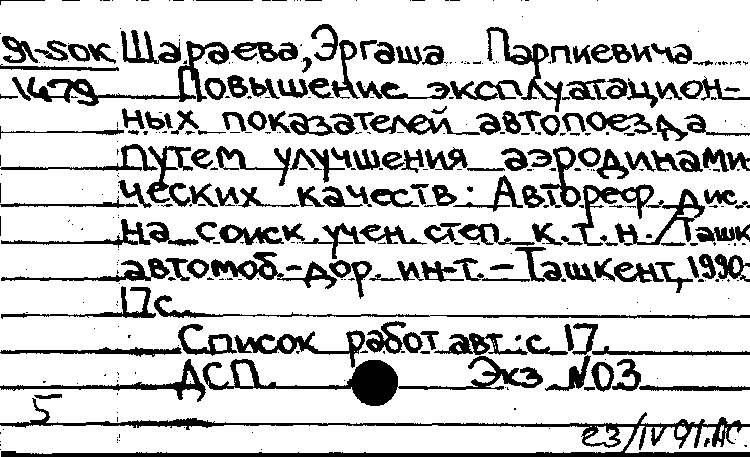 91-50к Шараева, Эргаша Парпиевича
1479 Повышение эксплуатацион-
ных показателей автопоезда
путем улучшения аэродинами
ческих качеств: Автореф. дис.
на соиск. учен. степ. к.т.н. / Ташк
автомоб.-дор. ин-т. - Ташкент, 1990-
17с.
Список работ авт.: с 17.
ДСП. Экз №03
5
е3/IV 91. АС.